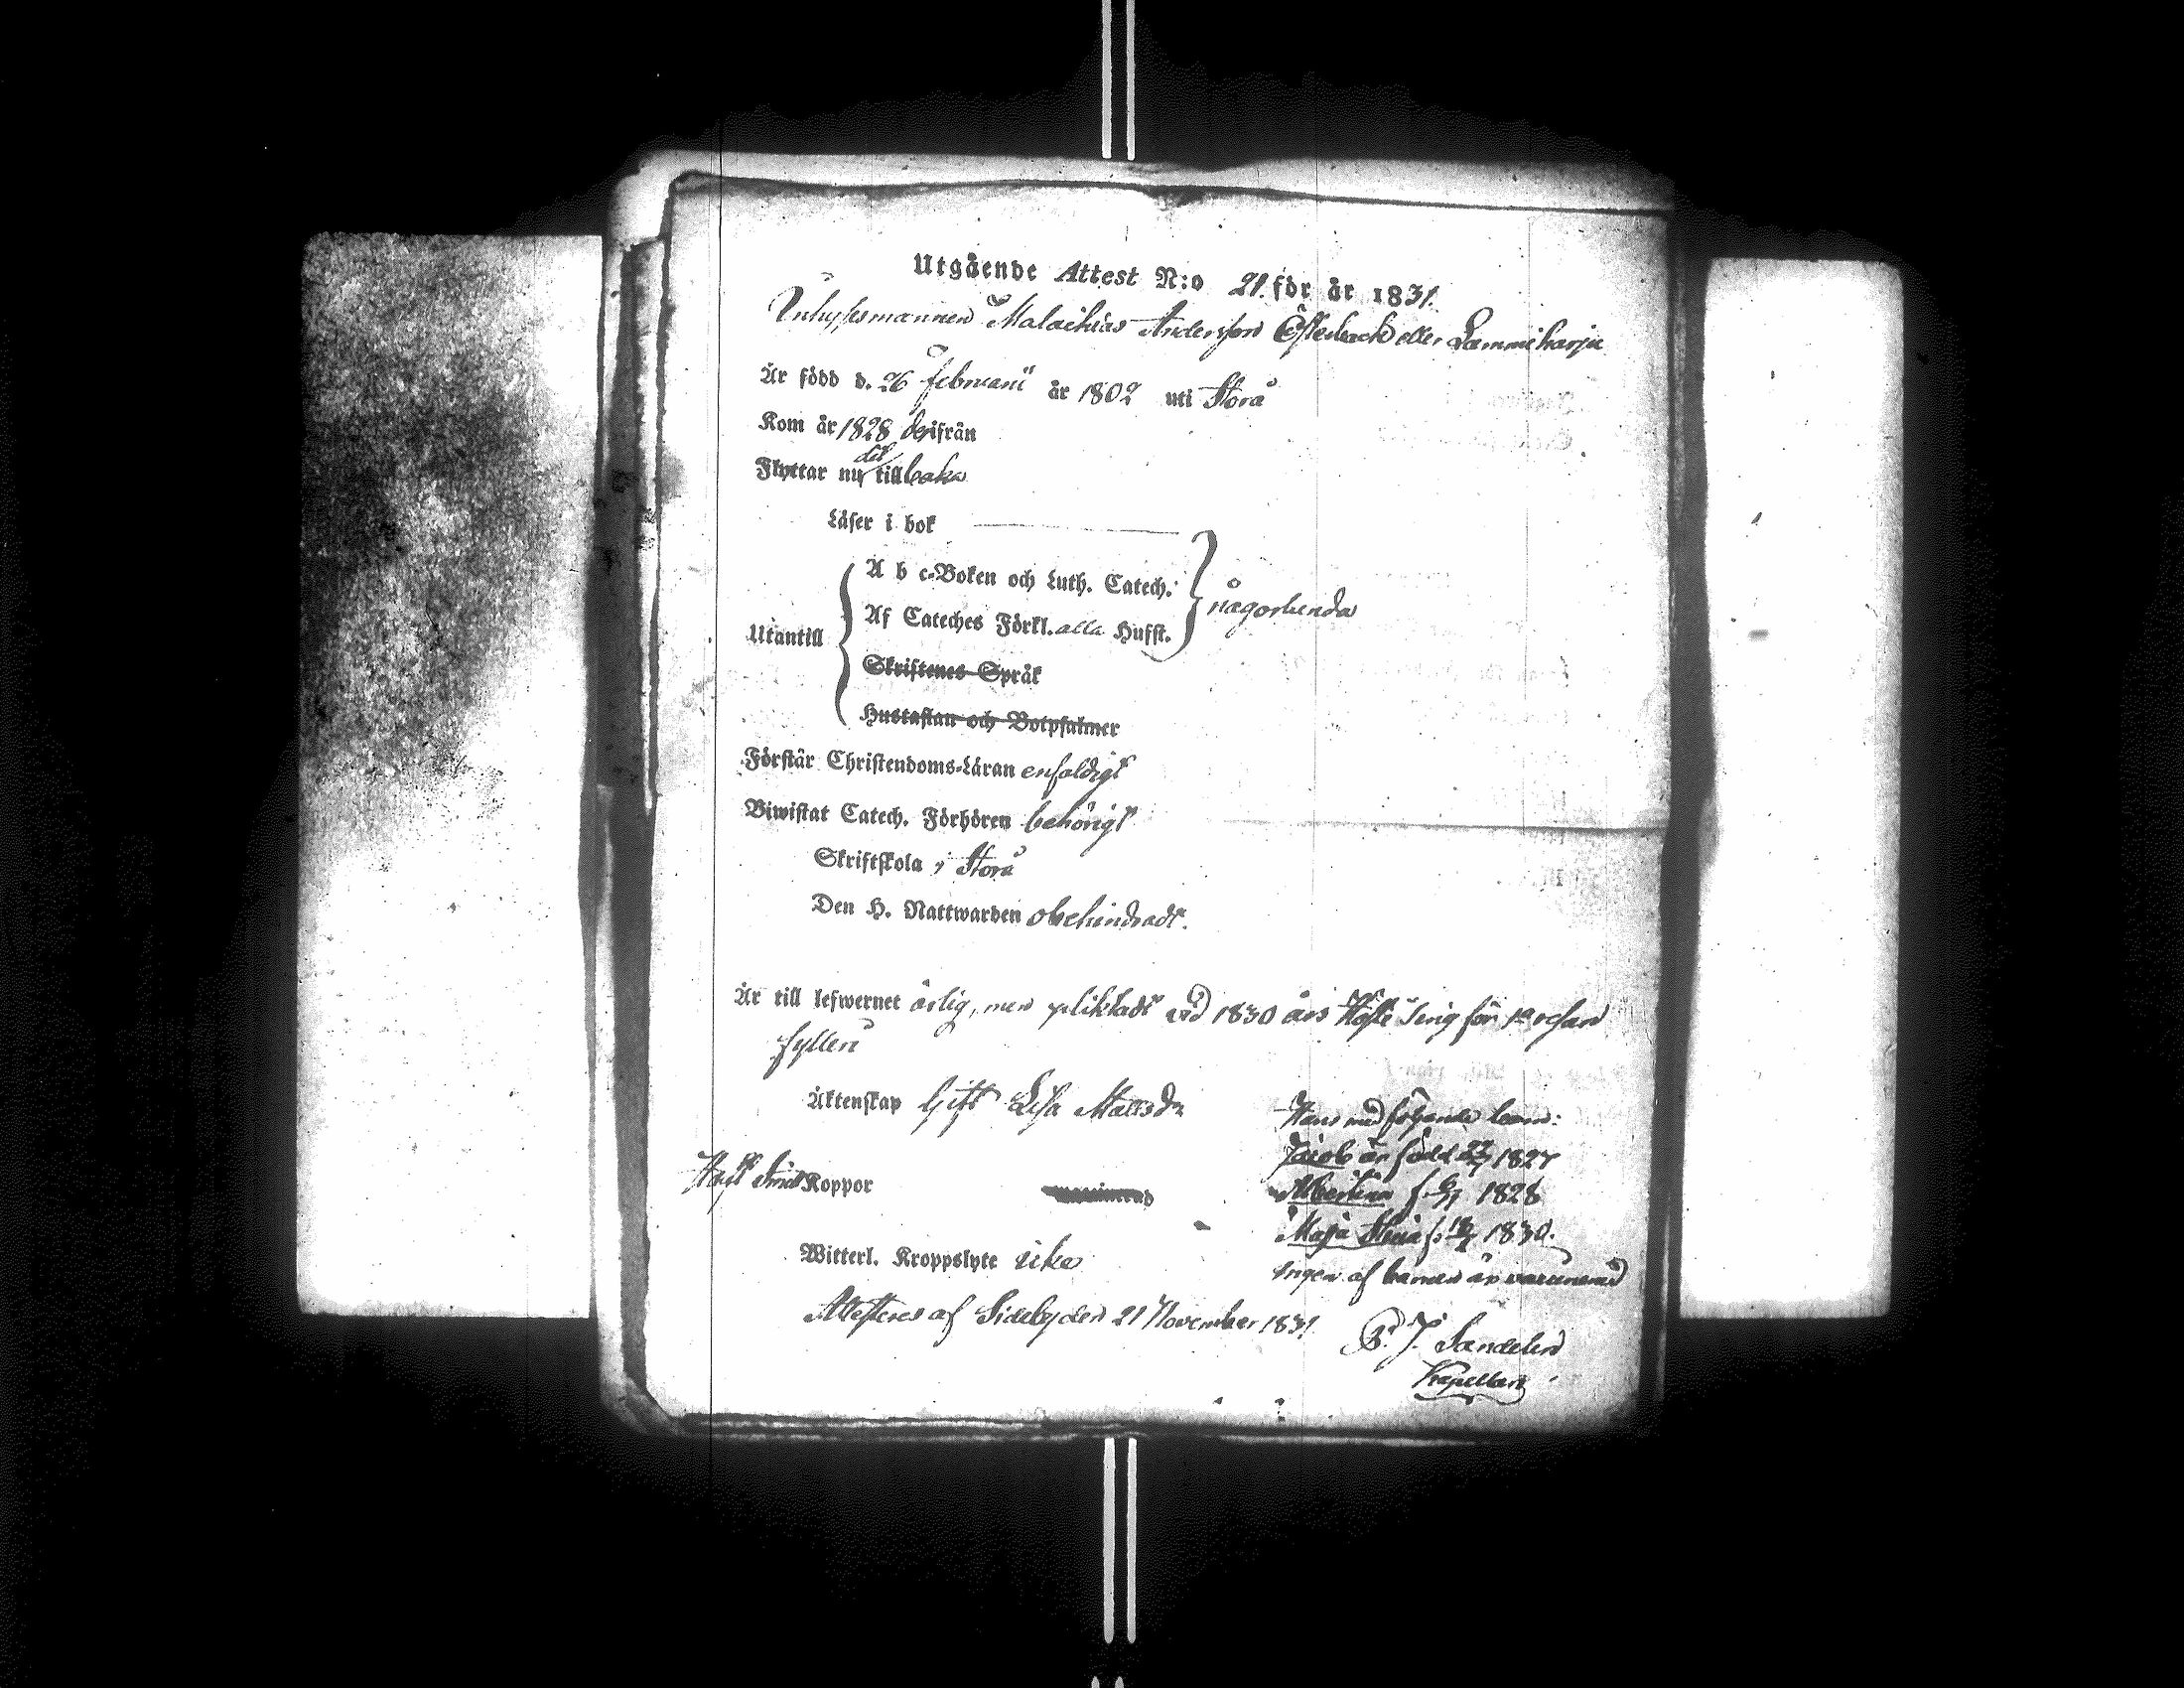 Utgående Attest N:o 21. för år 1831.
Inhysesmannen Malachias Andersson Österback eller Lammiharju
Är född d. 26 februarii år 1802 uti Storå
Kom år 1828 derifrån
Flyttar nu dit tillbaka
Läser i bok
A b c-Boken och Luth. Catech.
Af Cateches Förkl. alla Hufst.
någorlunda
Utantill
Skriftenes Språk
Hustaflan och Botpsalmer
Förstår Christendoms-Läran enfaldigt
Biwistat Catech. Förhören behörigt
Skriftskola i Storå
Den H. Nattwarden obehindradt.
Är till lefwernet ärlig, men pliktadt vid 1830 års Höste Ting för 1a resan
fylleri
Äktenskap Gift Lisa Mattsdr
Hans med följande barn:
Jacob är född 22/7 1827
Haft Koppor
Albertina f. 6/1 1828
Maja Stina f. 18/1 1830.
Witterl. Kroppslyte icke
Ingen af barnen är vaccinerad
Attesteras af Sideby den 21 November 1831
B. J. Sandelin
Kapellan